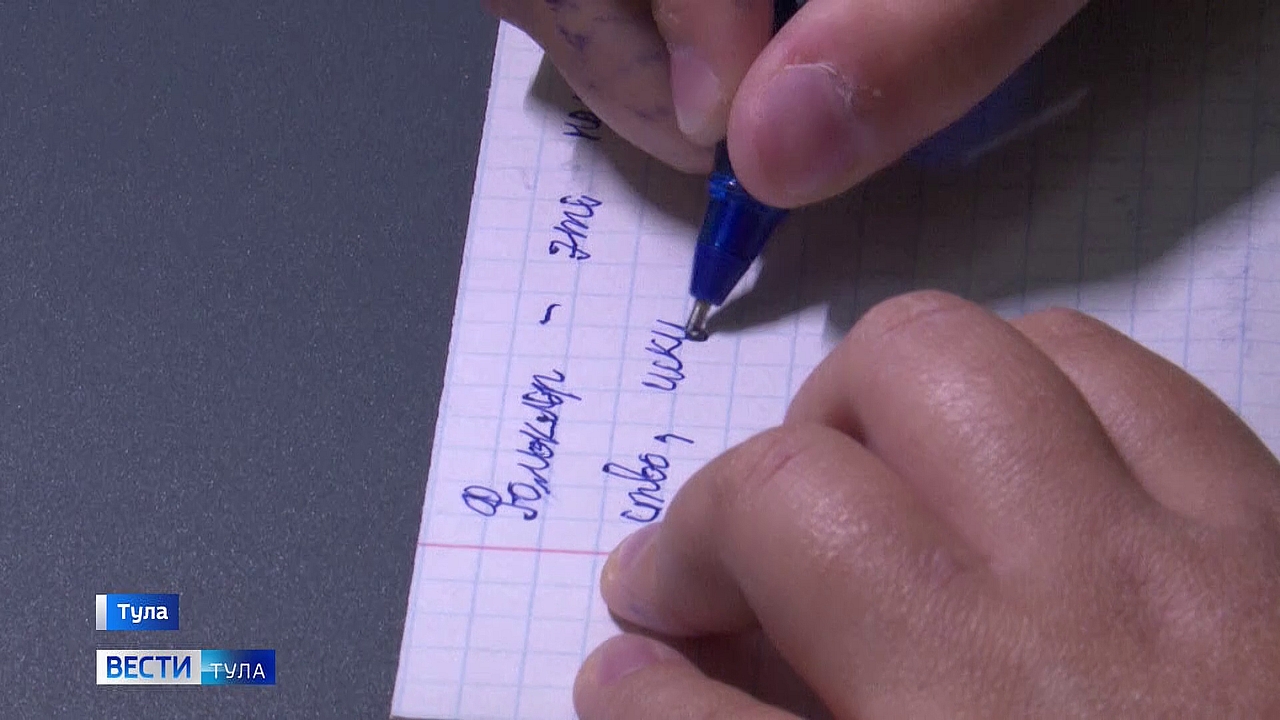 Фольклор - это
ство, иску
Тула
ВЕСТИ ТУЛА